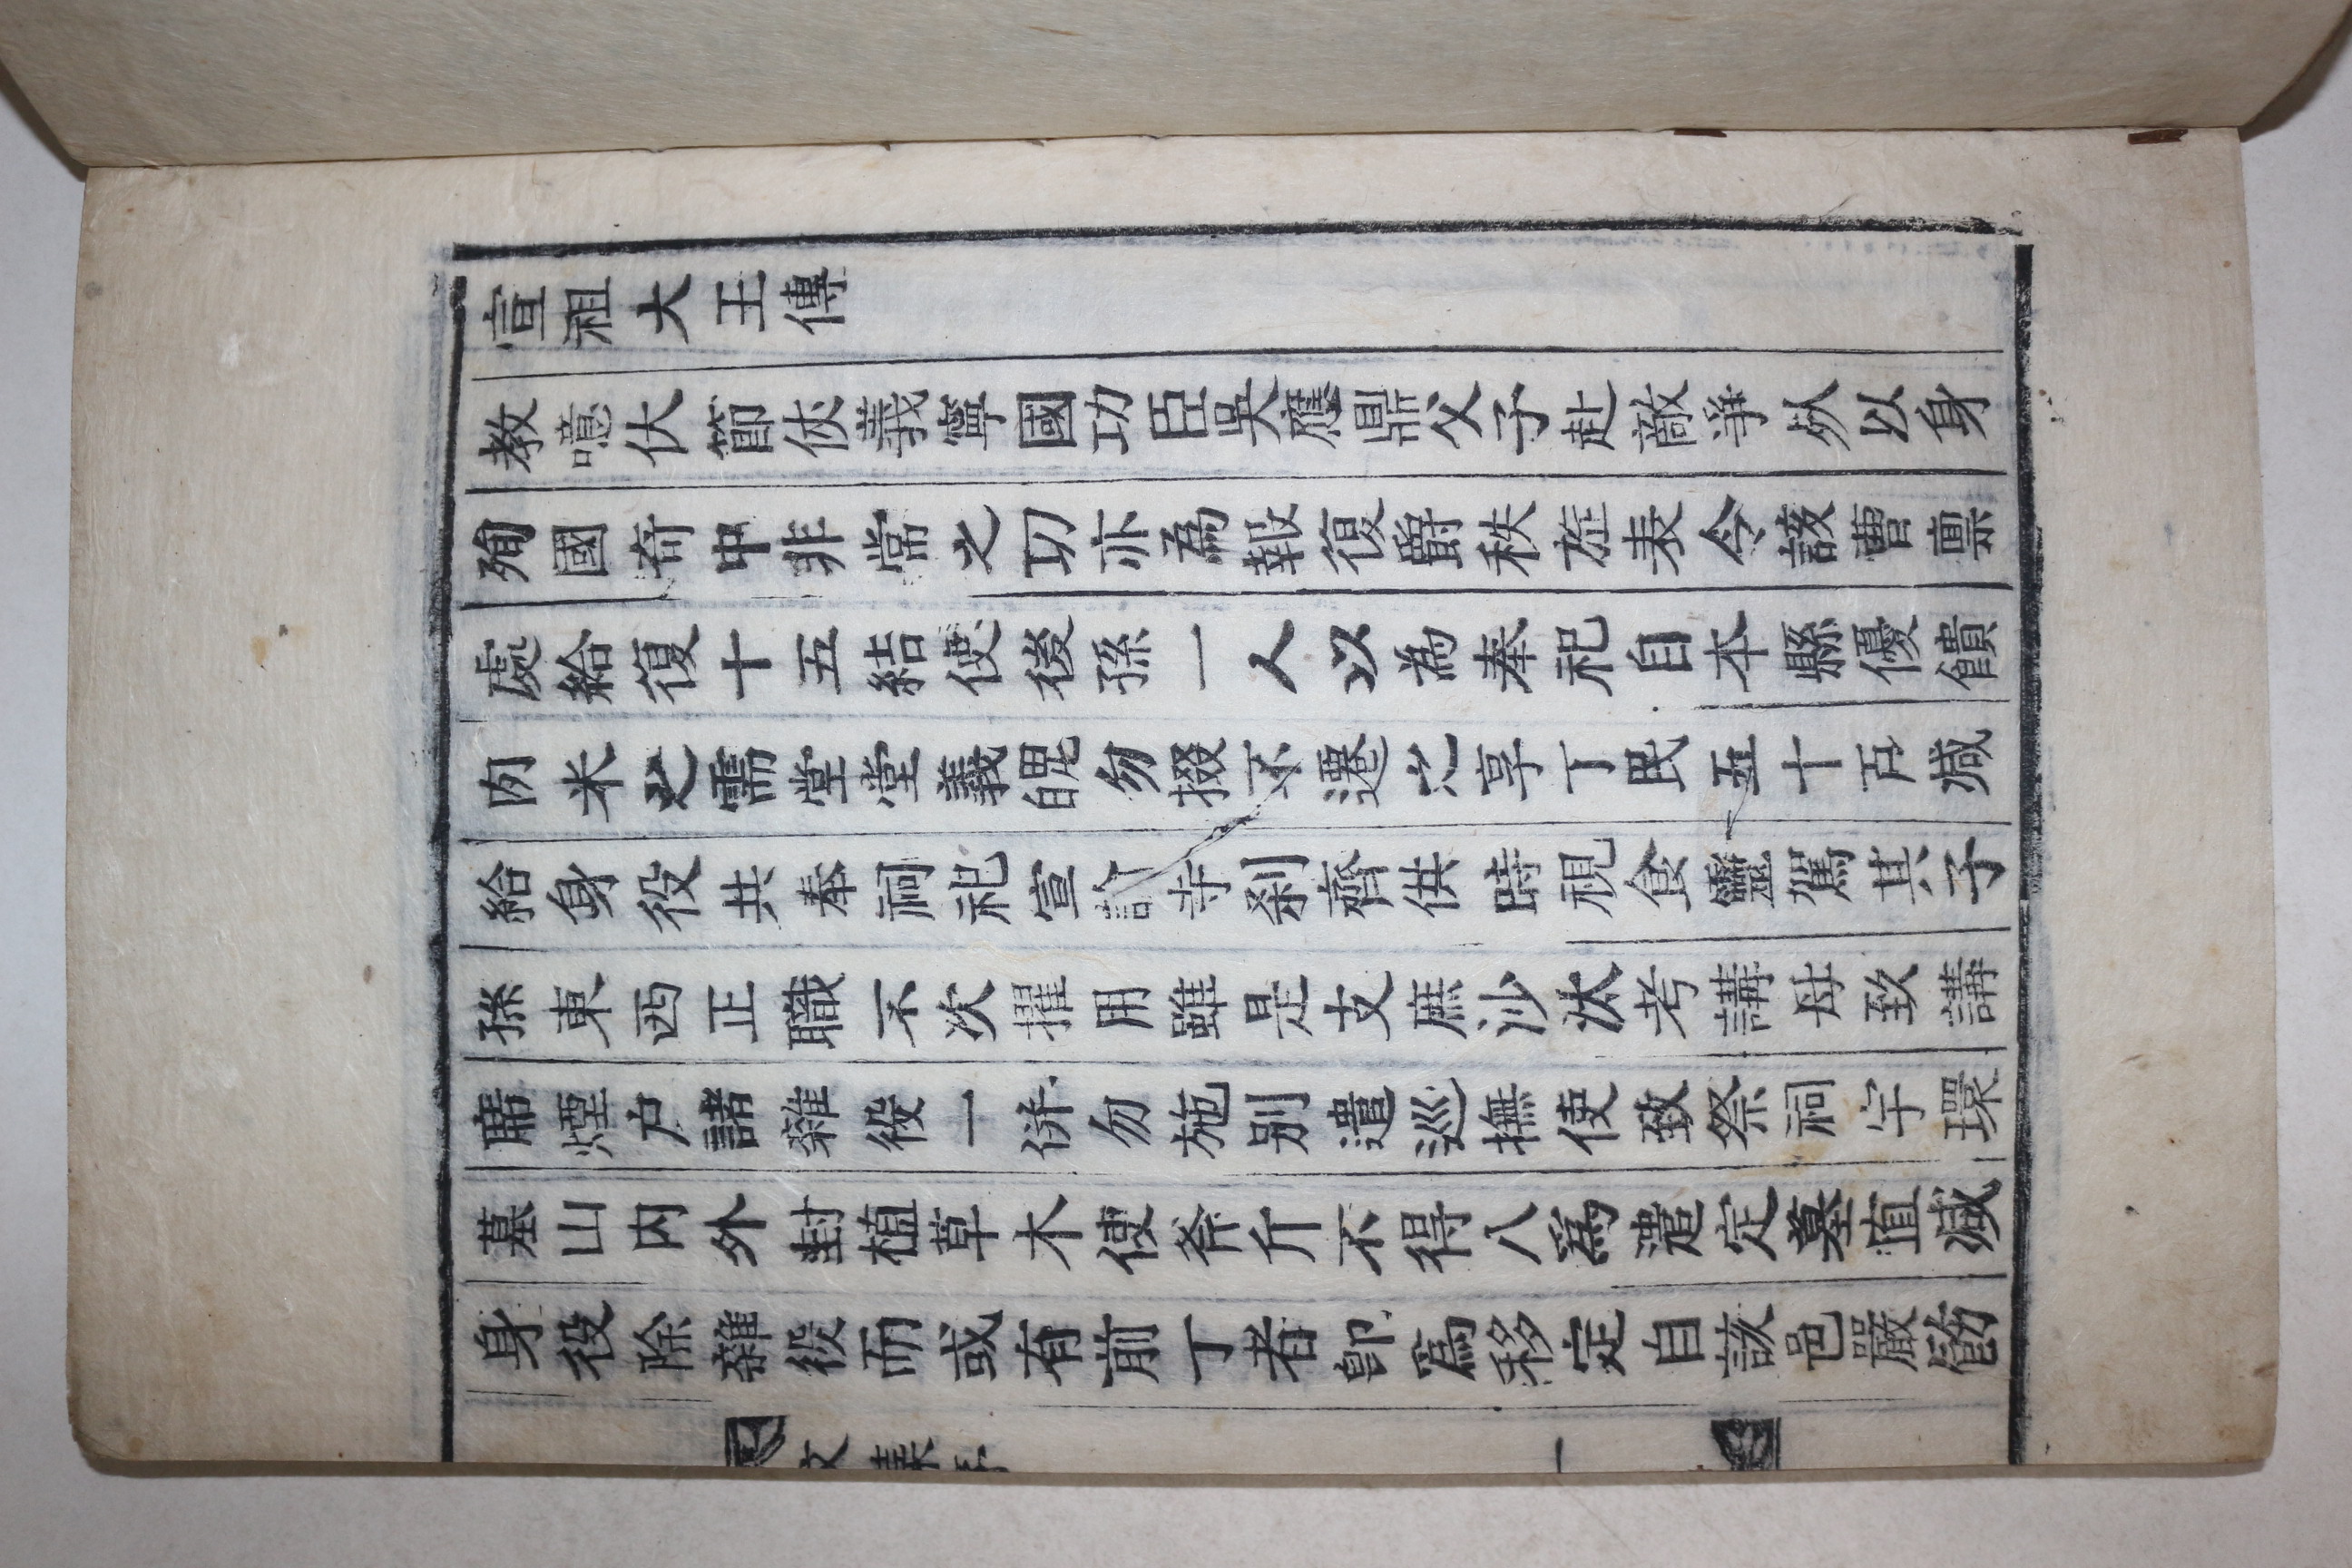 宣祖大王傳
教噫伏節伏義寧國功臣吳應鼎父子赴敵爭死以身
殉國奇中非常之功亦為報復爵秩旌表今該曹稟
處給復十五結使後孫一人以為奉祀自本縣優饋
肉米之需堂堂義魄勿掇不遷之享丁民五十百減
給身役共奉祠祀宣許寺刹齊供時祝食靈駕其子
孫東西正職不次擢用雖是支庶沙汰考講毋致講
席煙户諸雜役一併勿施別遣巡撫使致祭祠宇環
墓山内外封植草木使斧斤不得入為遣定墓直減
身役除雜役而或有前丁者卽爲移定自該邑嚴飭